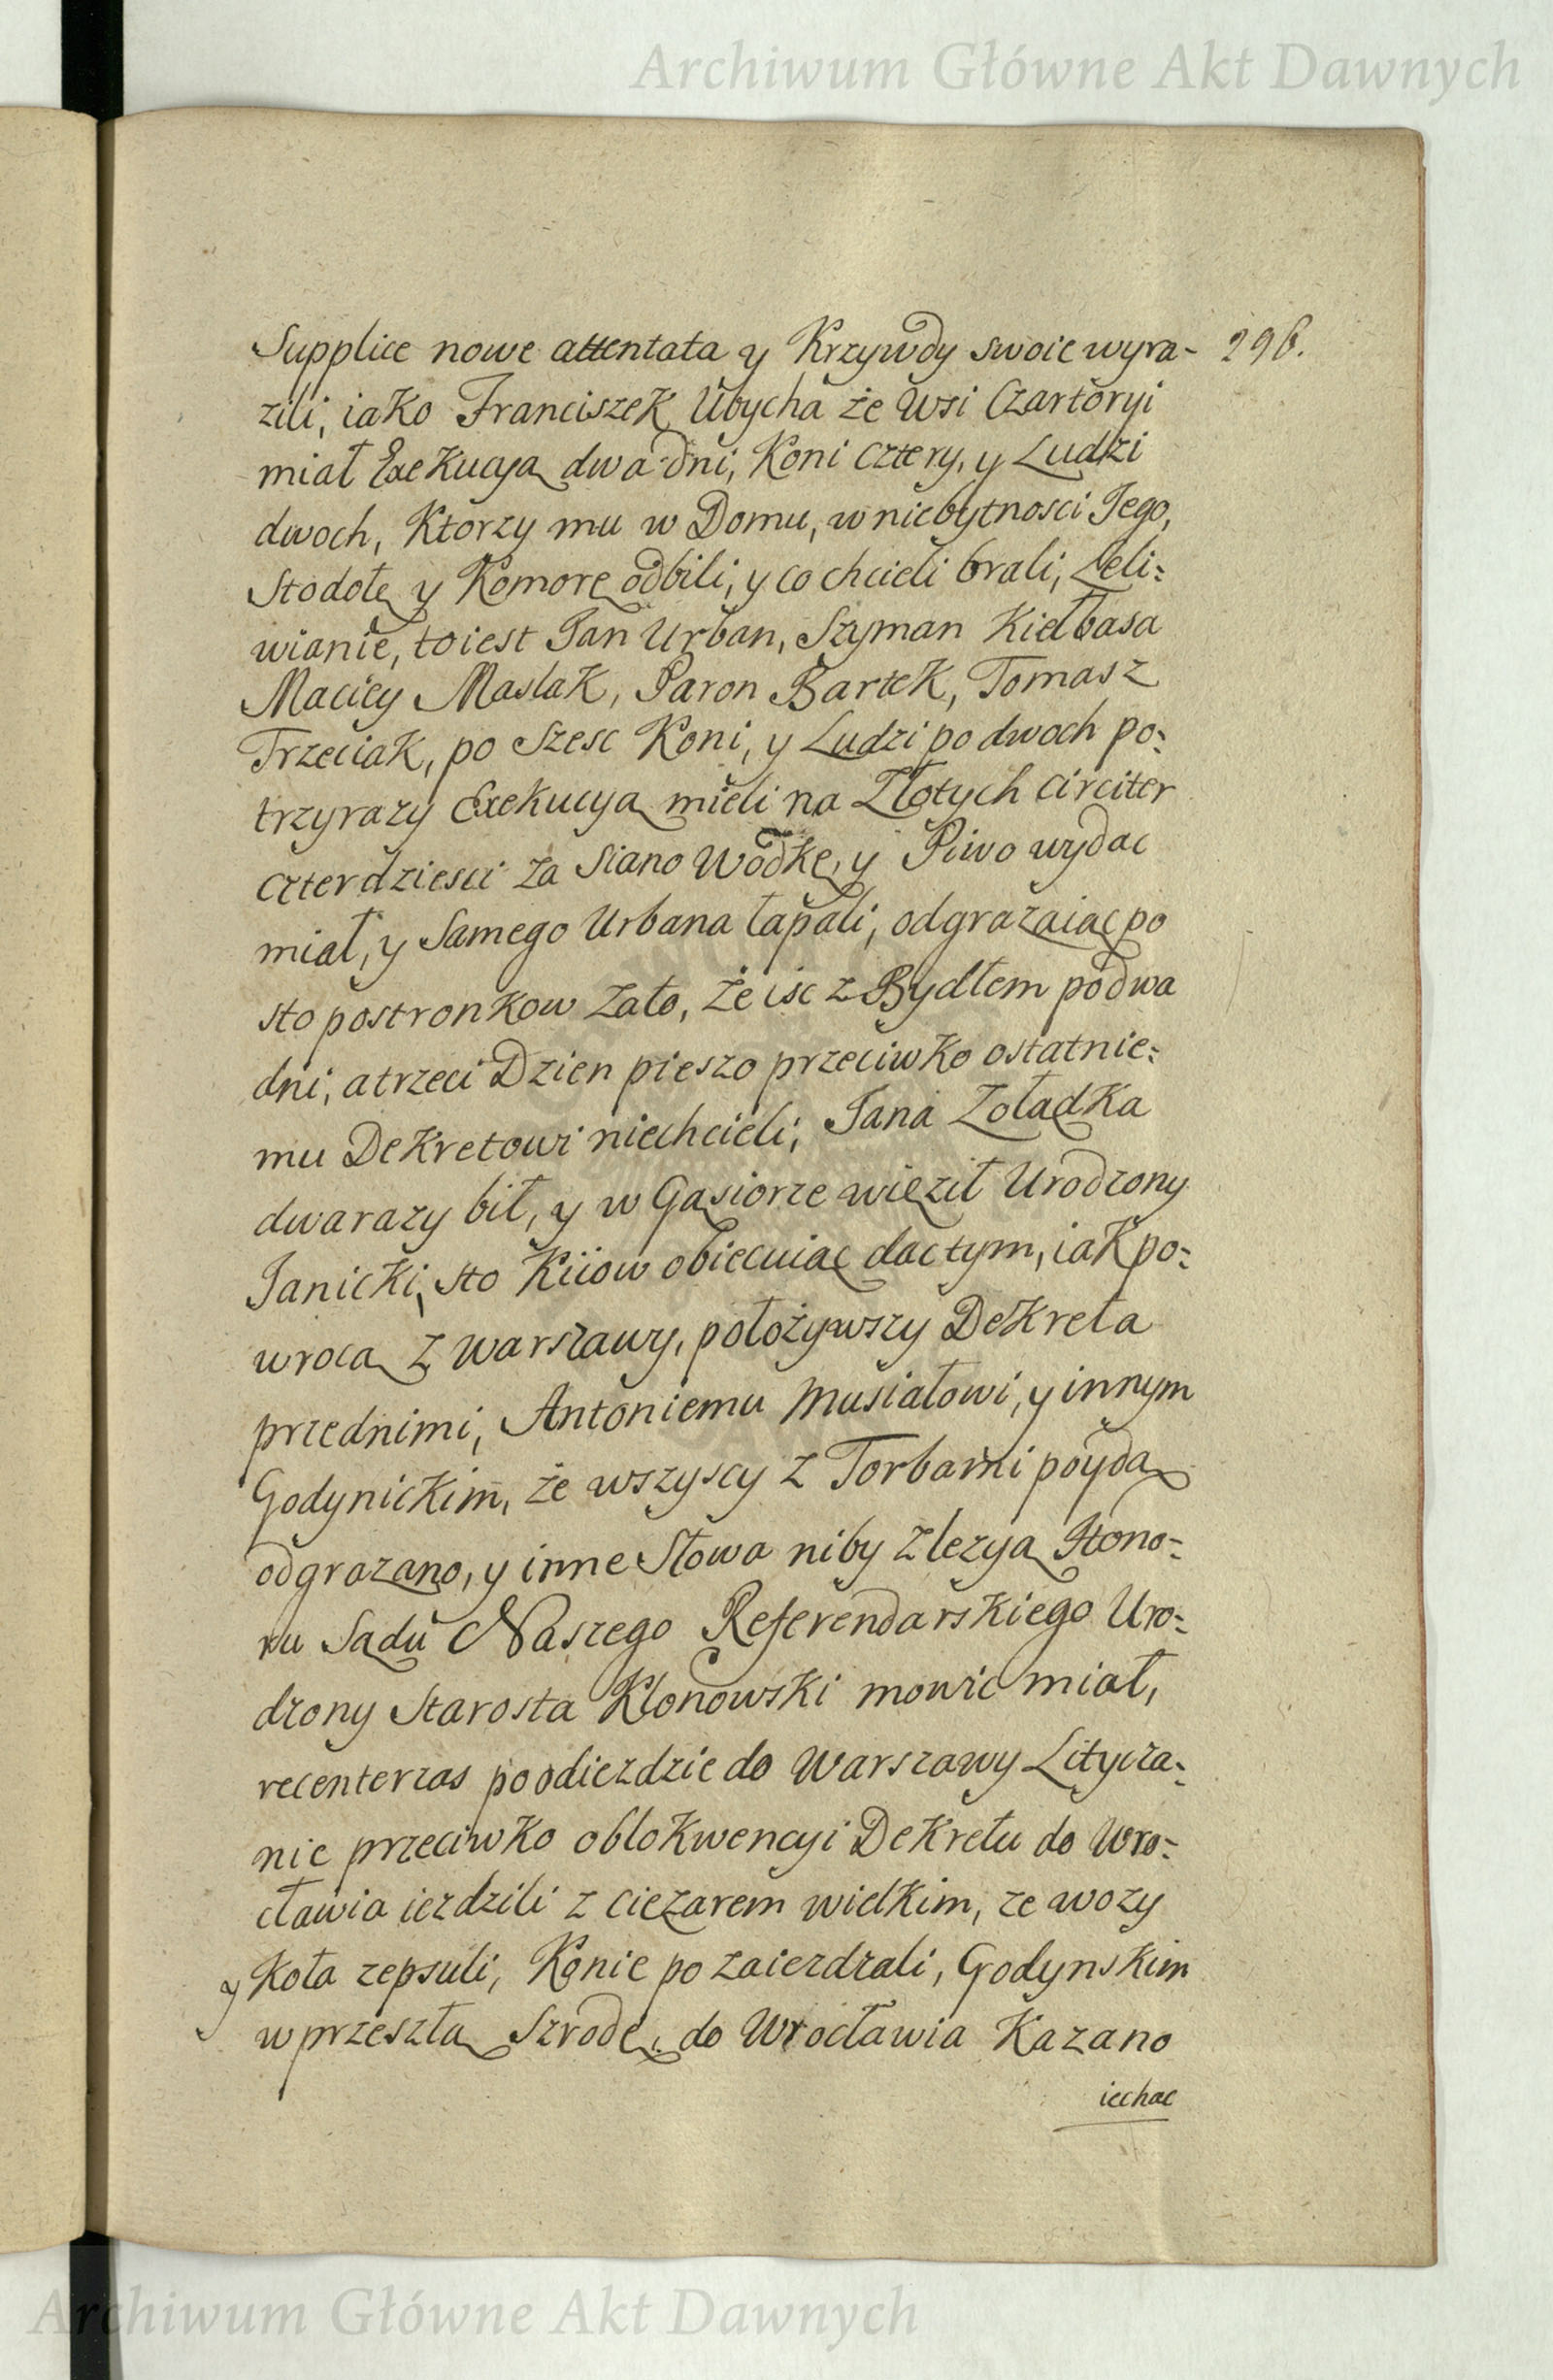 Archiwum Główne Akt Dawnych
Supplice nowe attentata y Krzywdy swoie wyra- 296.
zili, iako Franciszek Ubycha że Wsi Czartoryi
miał Exekucyą dwa dni, Koni cztery, y Ludzi
dwoch, Ktorzy mu w Domu, w niebytnosci Jego,
Stodołę y Komorę odbili, y co chcieli brali, Leli=
wianie, toiest Jan Urban, Szyman Kiełbasa
Maciey Maslak, Paron Bartek, Tomasz
Trzeciak, po Szesc Koni, y Ludzi po dwoch po=
trzyrazy Exekucyą mieli na Złotych circiter
czterdziesci za Siano Wodkę, y Piwo wydac
miał, y Samego Urbana łapali, odgrazaiąc po
sto postronkow zato, że isc z Bydłem podwa
dni, a trzeci Dzien pieszo przeciwko ostatnie=
mu Dekretowi niechcieli; Jana Zołądka
dwarazy bił, y w Gąsiorze więził Urodzony
Janicki, sto Kiiow obiecuiąc dac tym, iak po=
wrocą z Warszawy, położywszy Dekreta
przednimi, Antoniemu Musiałowi, y innym
Godynickim, że wszyscy z Torbami poydą
odgrazano, y inne Słowa niby z lezyą Hono=
ru Sądu Naszego Referendarskiego Uro=
dzony Starosta Klonowski mowic miał,
recenter zas po odiezdzie do Warszawy Litycza=
nie przeciwko oblokwencyi Dekretu do Wro=
cławia iezdzili z ciezarem wielkim, ze wozy
y Koła zepsuli, Konie po zaiezdzali, Godynskim
w przeszłą Szrodę, do Wrocławia Kazano
iechac
Archiwum Główne Akt Dawnych